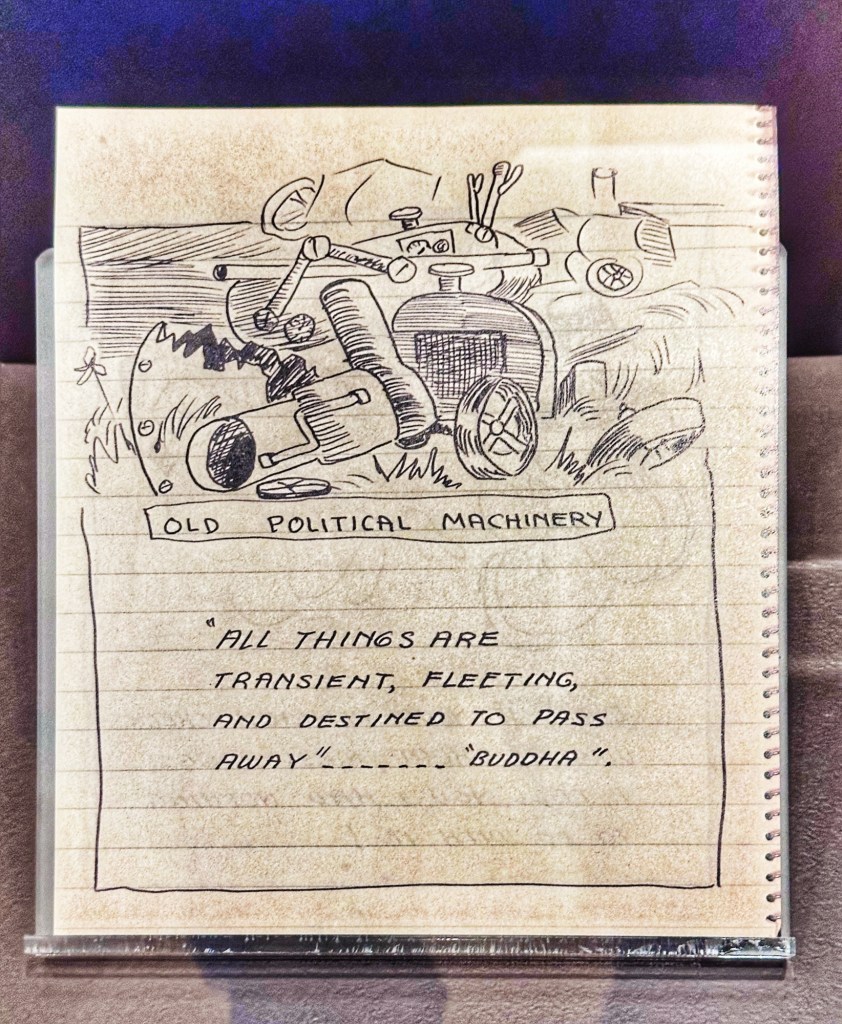 OLD POLITICAL MACHINERY
"ALL THINGS ARE
TRANSIENT, FLEETING,
AND DESTINED TO PASS
AWAY"------- "BUDDHA".